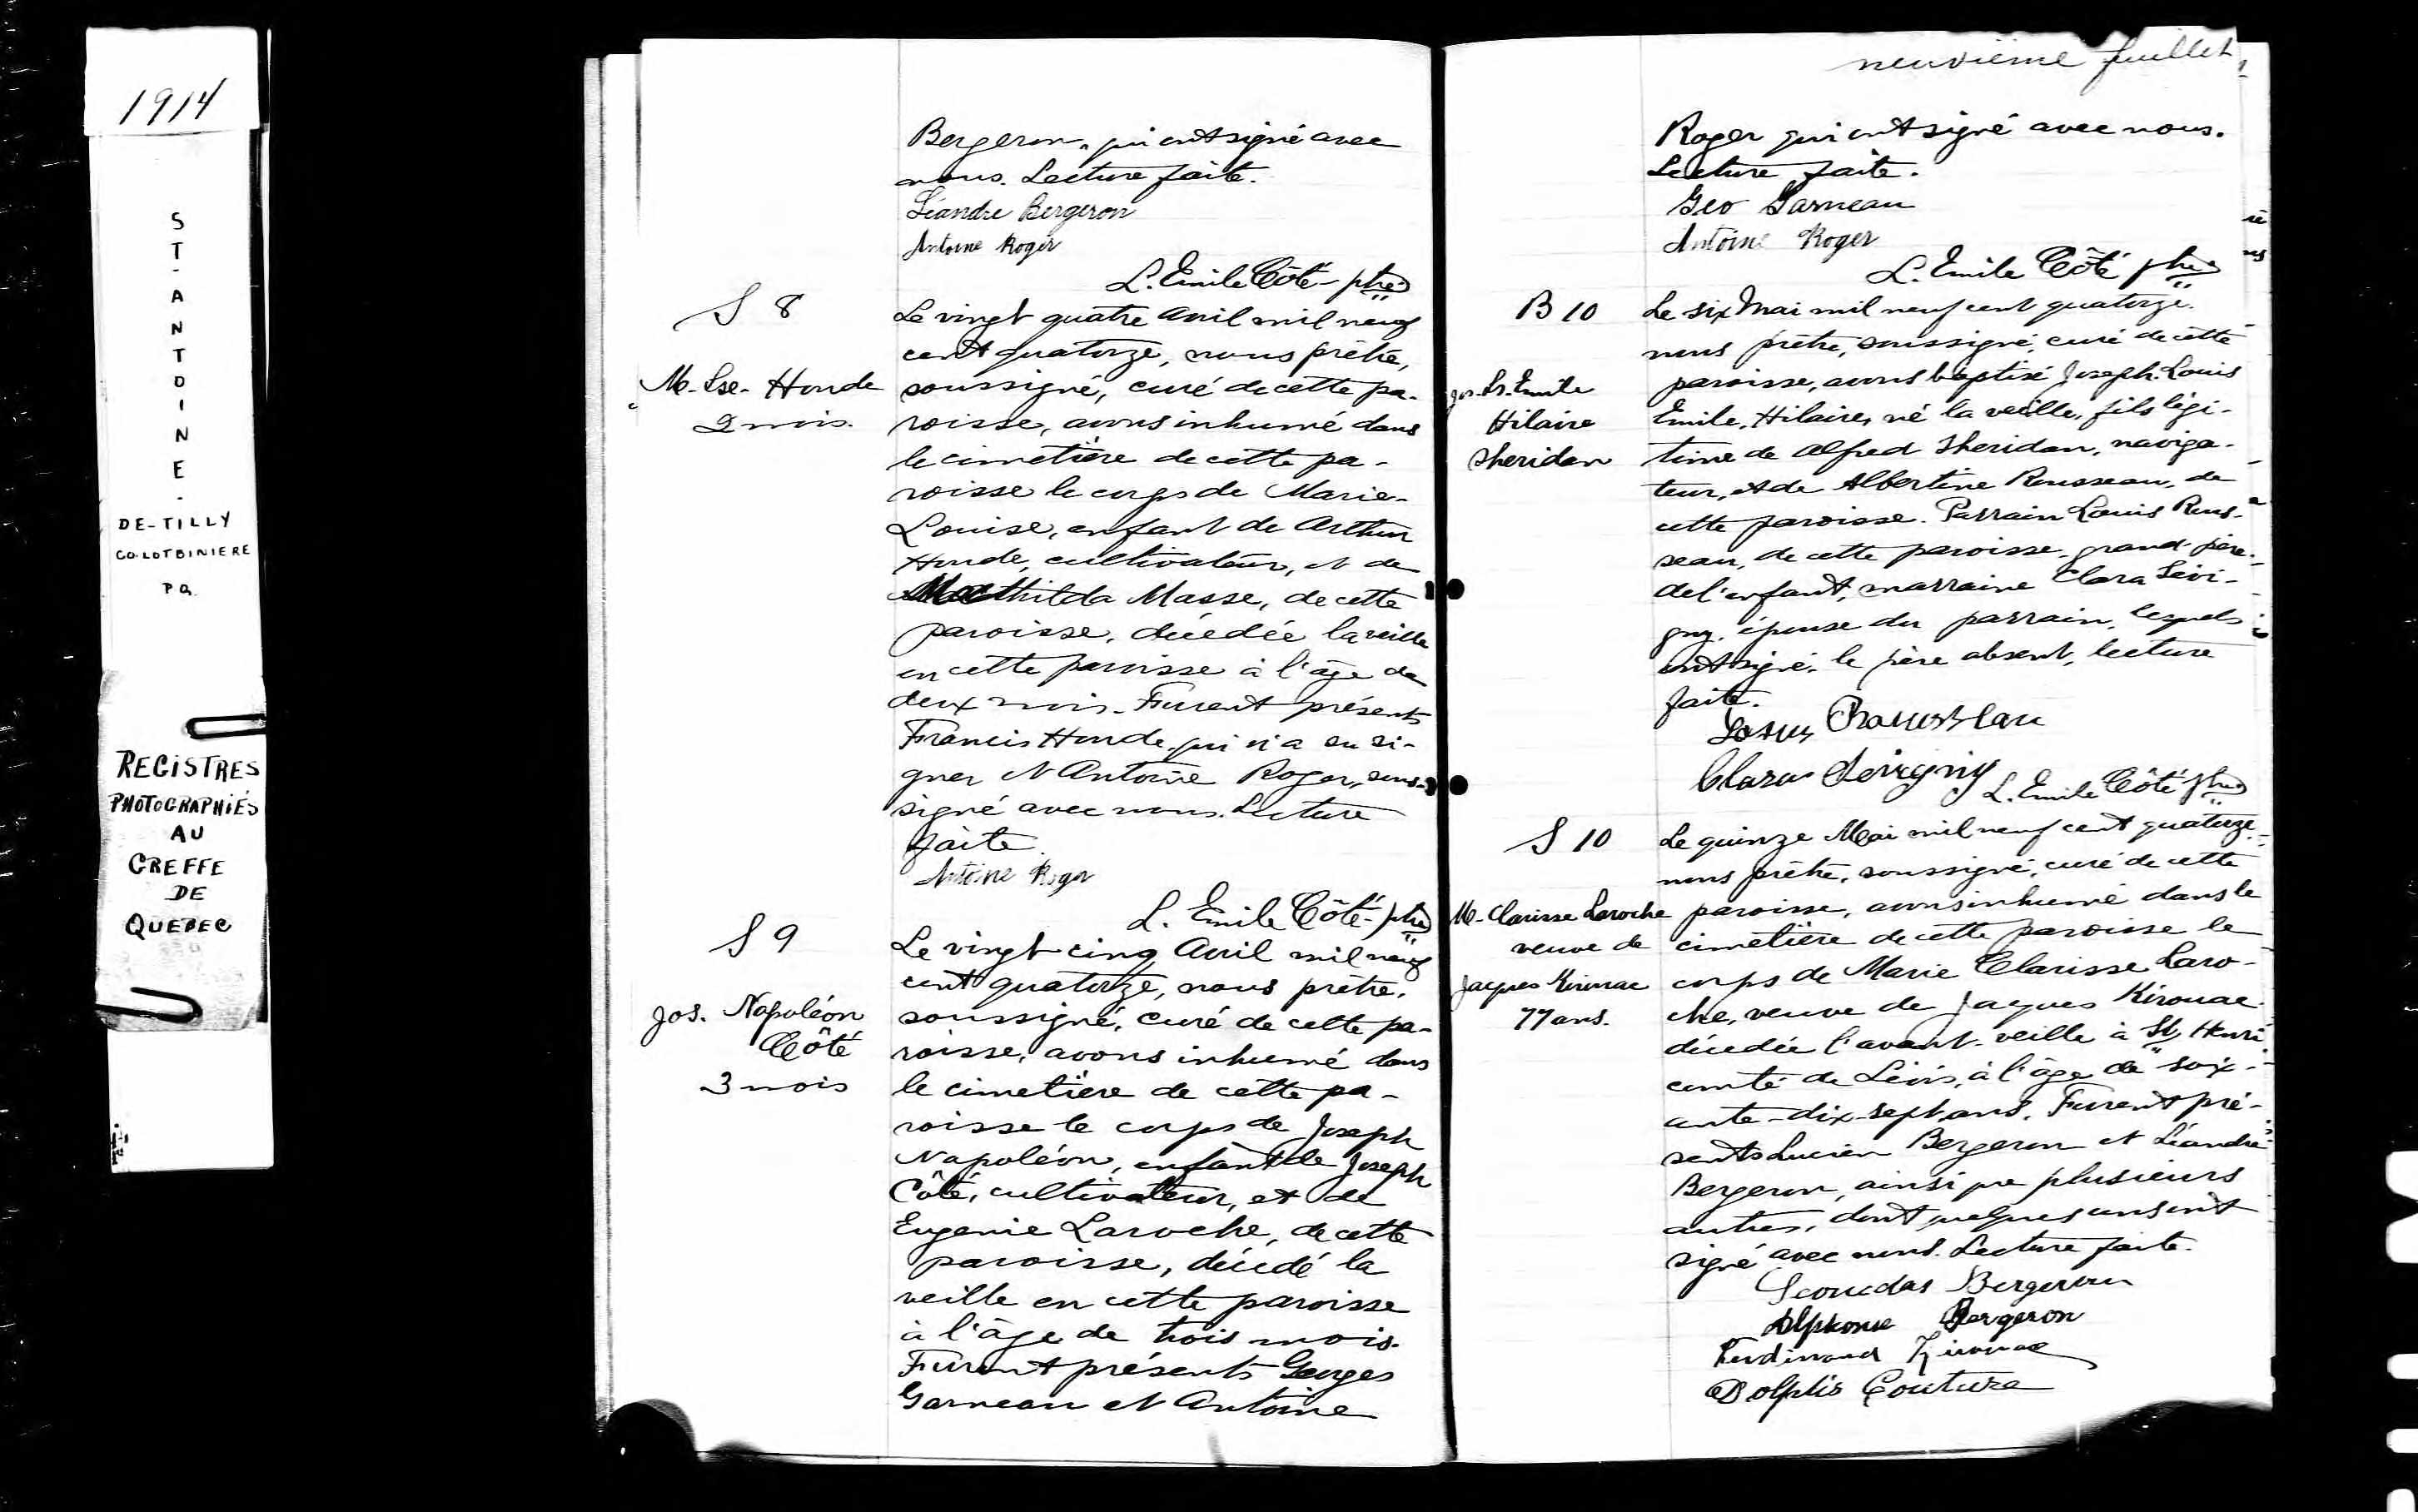 1914
ST-ANTOINE-
DE-TILLY
CO. LOTBINIERE
P Q.
REGISTRES
PHOTOGRAPHIÉS
AU
GREFFE
DE
QUEBEC
Bergeron, qui ont signé avec
nous. Lecture faite.
Léandre Bergeron
Antoine Roger
L. Emile Côté ptre
S 8
M-Lse- Houde
2 mois.
Le vingt quatre Avril mil neuf
cent quatorze, nous prêtre,
soussigné, curé de cette pa-
roisse, avons inhumé dans
le cimetière de cette pa-
roisse le corps de Marie-
Louise, enfant de Arthur
Houde, cultivateur, et de
Mathilda Masse, de cette
paroisse, décédée la veille
en cette paroisse à l'âge de
deux mois. Furent présents
Francis Houde, qui n'a su si-
gner et Antoine Roger, sous-
signé avec nous. Lecture
faite.
Antoine Roger
L. Emile Côté ptre
S 9
Jos. Napoléon
Côté
3 mois
Le vingt cinq Avril mil neuf
cent quatorze, nous prêtre,
soussigné, curé de cette pa-
roisse, avons inhumé dans
le cimetière de cette pa-
roisse le corps de Joseph
Napoléon, enfant de Joseph
Côté, cultivateur, et de
Eugenie Laroche, de cette
paroisse, décédé la
veille en cette paroisse
à l'âge de trois mois.
Furent présents Georges
Garneau et Antoine
neuvième feuillet
Roger qui ont signé avec nous.
Lecture faite.
Geo Garneau
Antoine Roger
L. Emile Côté ptre
B 10
Jos. Ls. Emile
Hilaire
Sheridan
Le six Mai mil neuf cent quatorze.
nous prêtre, soussigné, curé de cette
paroisse, avons baptisé Joseph. Louis
Emile, Hilaire, né la veille, fils légi-
time de Alfred Sheridan, naviga-
teur, et de Albertine Rousseau, de
cette paroisse. Parrain Louis Rous-
seau, de cette paroisse, grand père
de l'enfant, marraine Clara Sévi-
gny, épouse du parrain, lesquels
ont signé, le père absent, lecture
faite.
Louis Rousseau
Clara Sévigny
L. Emile Côté ptre
S 10
M-Clarisse Laroche
veuve de
Jacques Kirouac
77 ans.
Le quinze Mai mil neuf cent quatorze.
nous prêtre, soussigné, curé de cette
paroisse, avons inhumé dans le
cimetière de cette paroisse le
corps de Marie Clarisse Laro-
che, veuve de Jacques Kirouac
décédée l'avant-veille à St Henri
comté de Lévis, à l'âge de soix-
ante-dix-sept ans. Furent pré-
sents Lucien Bergeron et Léandre
Bergeron, ainsi que plusieurs
autres, dont quelques uns ont
signé avec nous. Lecture faite.
Leonidas Bergeron
Alphonse Bergeron
Ferdinand Kirouac
Dolphis Couture